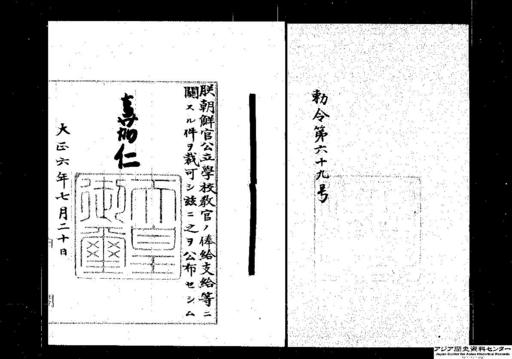 勅令第六十九号
朕朝鮮官公立學校教官ノ俸給支給等ニ
關スル件ヲ裁可シ玆ニ之ヲ公布セシム
嘉仁
天皇
御璽
大正六年七月二十日
アジア歴史資料センター
Japan Center for Asian Historical Records